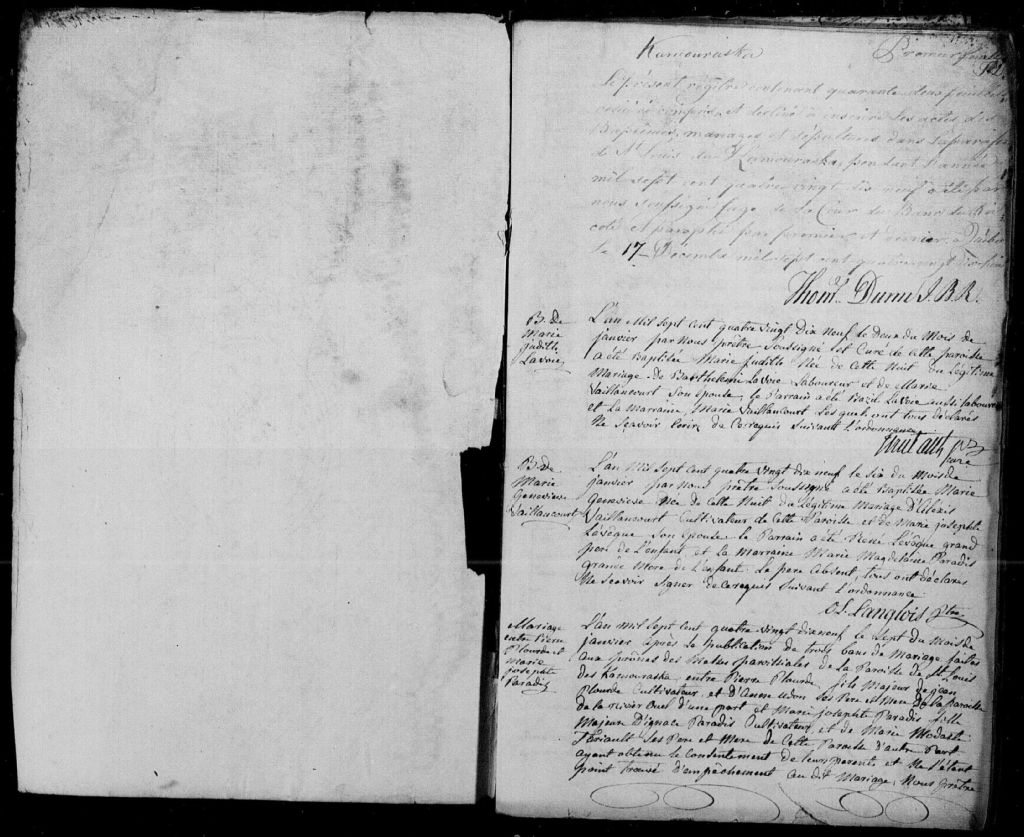 Kamouraska
Premier feuillet
Le présent régître contenant quarante deux feuillets
celui ci compris, et destiné à inscrire les actes des
Baptêmes, mariages et sépultures dans la paroisse
de St Louis de Kamouraska, pendant l'année
mil sept cent quatre vingt dix neuf a été par
nous soussigné juge de la Cour du Banc du Roi
coté et paraphé par premier et dernier. à Québec
le 17 Décembre mil sept cent quatre vingt dix huit
Thos. Dunn J.B.R.
B. De
Marie
judith
Lavoie
L'an Mil Sept Cent quatre vingt Dix neuf le Deux du Mois de
janvier par Nous prêtre Soussigné et Curé de Cette paroisse
a été Baptisée Marie judith Née de Cette Nuit du Légitime
Mariage de Barthelemi Lavoie Laboureur et de Marie
Vaillancourt Son épouse, le Parrain a été Bazil Lavoie aussi laboureur
et La Marraine, Marie Vaillancourt Lesquels ont tous déclarés
Ne Scavoir Ecrire de Ce requis Suivant L'ordonnance
curé
B. De
Marie
Genevieve
Vaillancourt
L'an Mil Sept Cent quatre vingt dix neuf le Six du Mois de
janvier par Nous prêtre Soussigné a été Baptisée Marie
Genevieve Née de Cette Nuit du Légitime Mariage D'Alexis
Vaillancourt Cultivateur de Cette Paroisse et de Marie josephte
Lévêque Son épouse le Parrain a été René Levêque grand
pere de L'enfant et La Marraine Marie Magdelaine Paradis
grande Mere de L'enfant. Le pere Absent, tous ont déclarés
Ne Scavoir Signer de Ce requis Suivant L'ordonnance
Langlois Ptre
Mariage
entre Pierre
Plourde et
Marie
josephte
Paradis
L'an mil Sept Cent quatre vingt dix neuf le Sept du Mois de
janvier après la publication de trois bans de Mariage faites
aux prônes des Messes paroissiales de La Paroisse de St Louis
des Kamouraska entre Pierre Plourde fils Majeur de jean
Plourde Cultivateur, et D'Anne udon Ses Pere et Mere de la paroisse
de la riviere Ouel d'une part et Marie josephte Paradis fille
Majeure D'ignace Paradis Cultivateur, et de Marie Modeste
Tériault Ses Pere et Mere de Cette Paroisse d'autre Part
ayant obtenu le Consentement de leurs parents et Ne S'étant
point trouvé d'empêchement au dit Mariage, Nous prêtre